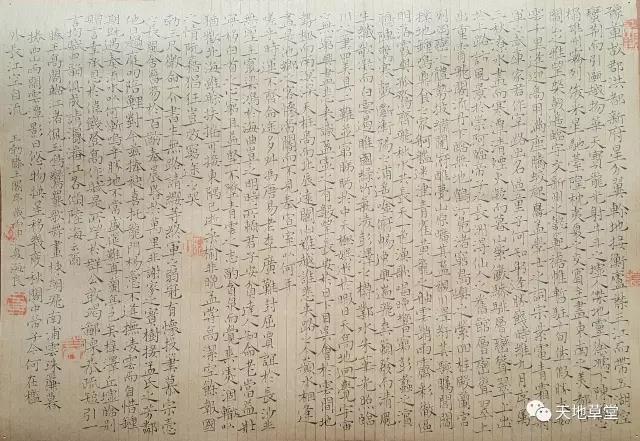 豫章故郡洪都新府星分翼軫地接衡廬襟三江而帶五湖控
蠻荊而引甌越物華天寶龍光射斗牛之墟人傑地靈徐孺下陳蕃之
榻雄州霧列俊采星馳臺隍枕夷夏之交賓主盡東南之美都督
閻公之雅望棨戟遙臨宇文新州之懿範襜帷暫駐十旬休假勝友如
雲千里逢迎高朋滿座騰蛟起鳳孟學士之詞宗紫電青霜王將
軍之武庫家君作宰路出名區童子何知躬逢勝餞時維九月序屬
三秋潦水盡而寒潭清煙光凝而暮山紫儼驂騑於上
路訪風景於崇阿臨帝子之長洲得仙人之舊館層巒聳翠上
出重霄飛閣流丹下臨無地鶴汀鳧渚窮島嶼之縈回桂殿蘭宮
列岡巒之體勢披繡闥俯雕甍山原曠其盈視川澤紆其駭矚閭閻
撲地鐘鳴鼎食之家舸艦迷津青雀黃龍之舳雲銷雨霽彩徹區
明落霞與孤鶩齊飛秋水共長天一色漁舟唱晚響窮彭蠡之濱
雁陣驚寒聲斷衡陽之浦遙襟甫暢逸興遄飛爽籟發而清風
生纖歌凝而白雲遏睢園綠竹氣凌彭澤之樽鄴水朱華光照臨
川之筆四美具二難並窮睇眄於中天極娛遊於暇日天高地迥覺宇宙
之無窮興盡悲來識盈虛之有數望長安於日下目吳會於雲間地
勢極而南溟深天柱高而北辰遠關山難越誰悲失路之人萍水相逢
盡是他鄉之客懷帝閽而不見奉宣室以何年
嗟乎時運不齊命途多舛馮唐易老李廣難封屈賈誼於長沙非
無聖主竄梁鴻於海曲豈乏明時所賴君子見機達人知命老當益壯寧
移白首之心窮且益堅不墜青雲之志酌貪泉而覺爽處涸轍以
猶歡北海雖賒扶搖可接東隅已逝桑榆非晚孟嘗高潔空餘報國
之情阮籍猖狂豈效窮途之哭
勃三尺微命一介書生無路請纓等終軍之弱冠有懷投筆慕宗愨
之長風舍簪笏於百齡奉晨昏於萬里非謝家之寶樹接孟氏之芳鄰
他日趨庭叨陪鯉對今茲捧袂喜托龍門楊意不逢撫凌雲而自惜鍾
期既遇奏流水以何慚嗚乎勝地不常盛筵難再蘭亭已矣梓澤丘墟臨別
贈言幸承恩於偉餞登高作賦是所望於群公敢竭鄙懷恭疏短引一
言均賦四韻俱成請灑潘江各傾陸海云爾
滕王高閣臨江渚佩玉鳴鸞罷歌舞畫棟朝飛南浦雲珠簾暮
捲西山雨閒雲潭影日悠悠物換星移幾度秋閣中帝子今何在檻
外長江空自流 王勃滕王閣序
天地草堂